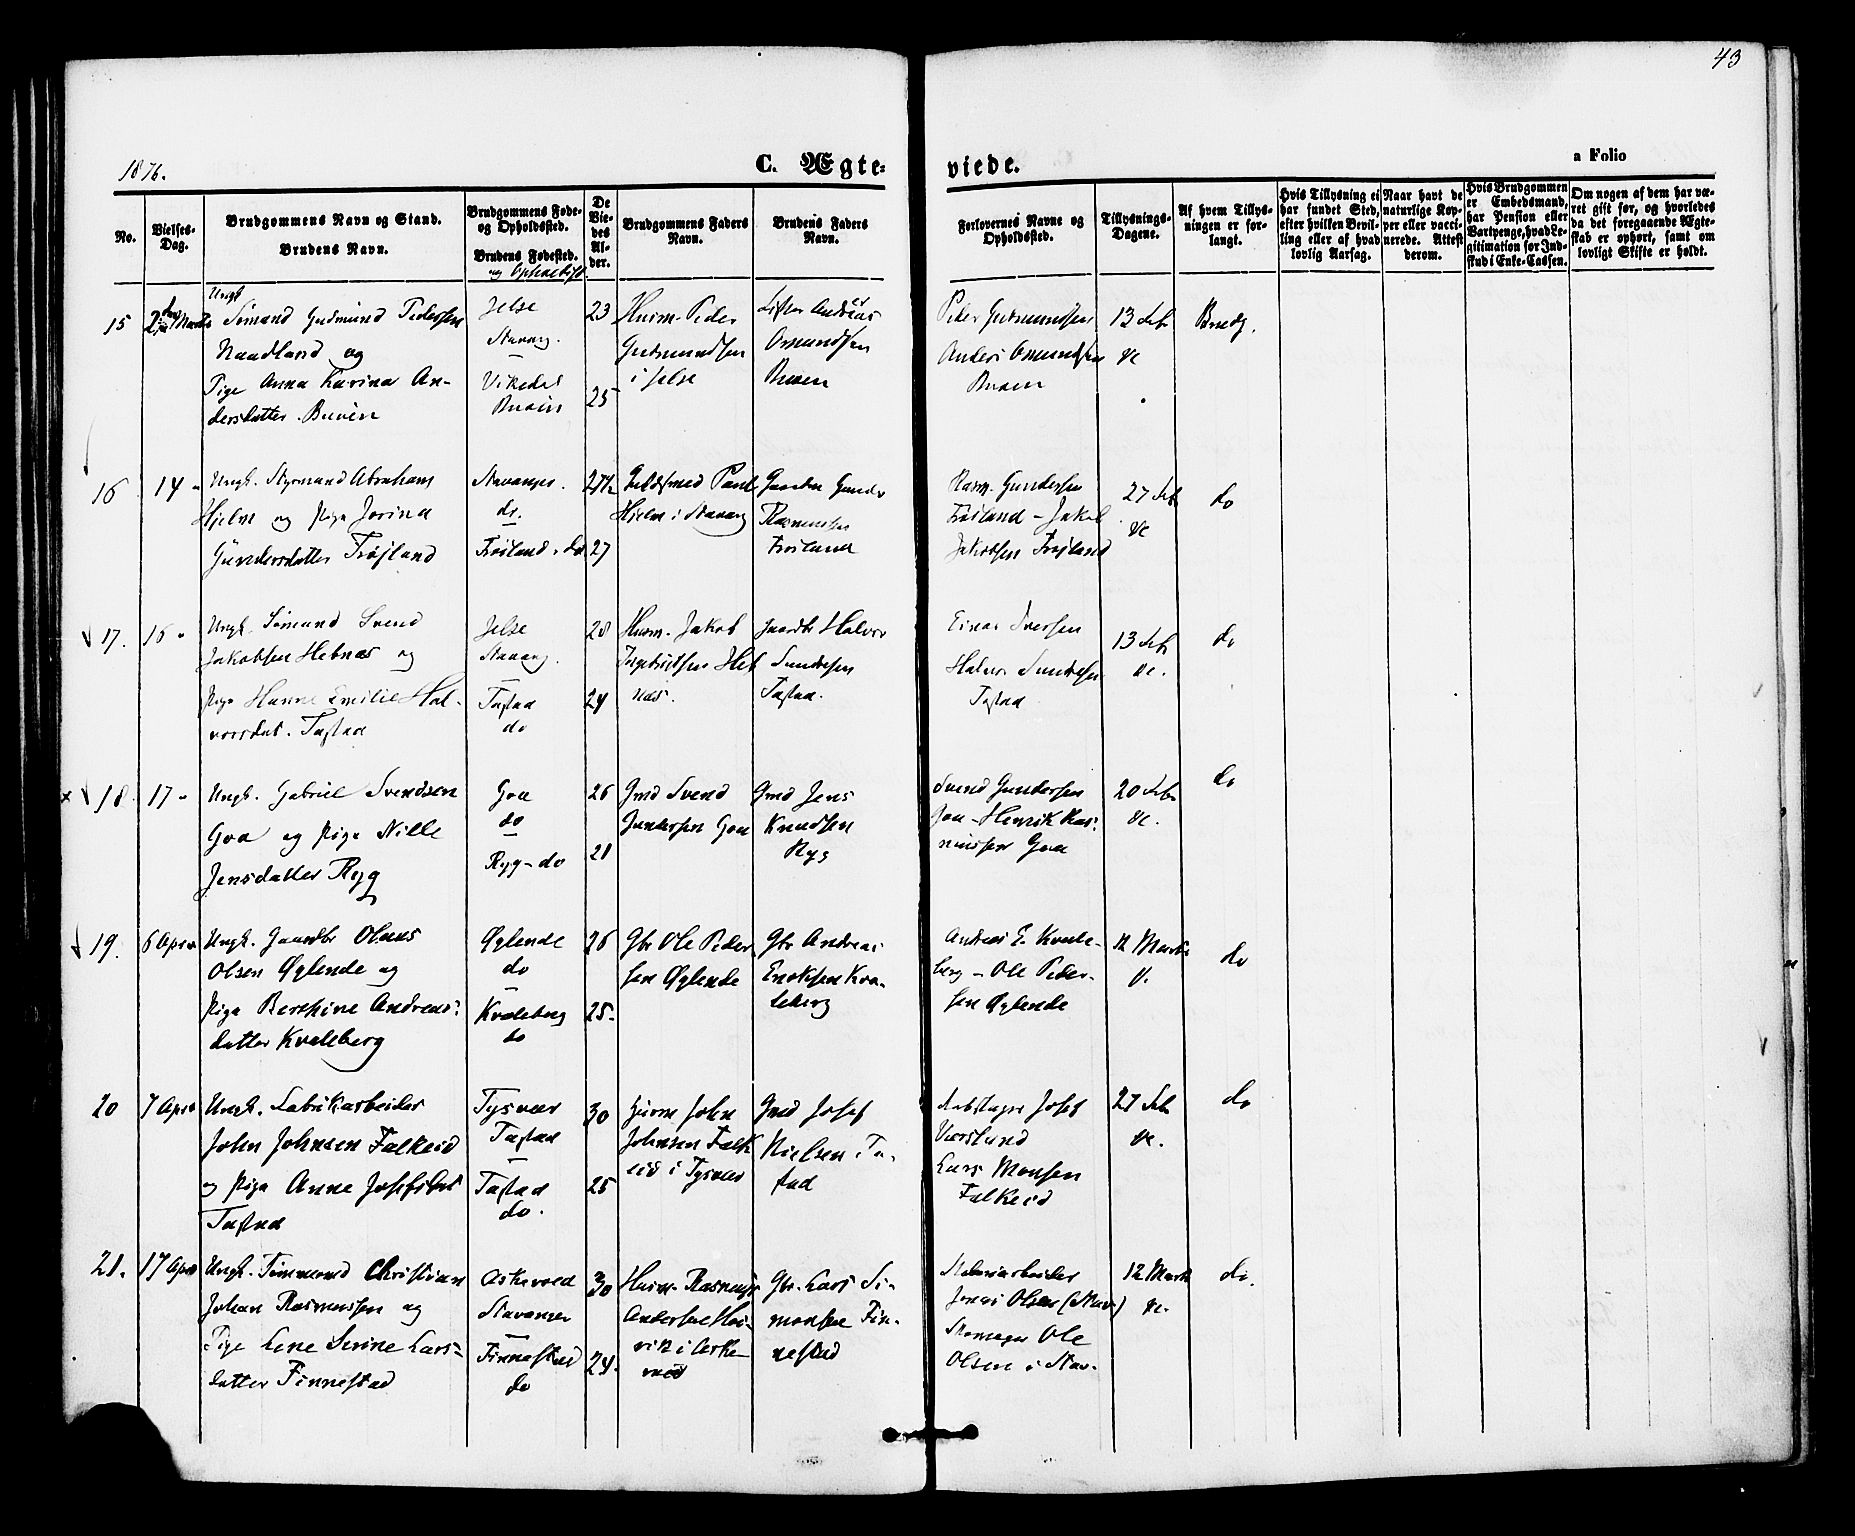 43
1876.
C. Ægte-
viede.
a Folio
No.
Vielses-
Dag.
Brudgommens Navn og Stand.
Brudens Navn.
Brudgommens Føde-
og Opholdssted.
Brudens Fødested.
og Opholdsst
De
Vie-
des
Al-
der.
Brudgommens Faders
Navn.
Brudens Faders
Navn.
Forlovernes Navne og
Opholdssted.
Tillysnings-
Dagene.
Af hvem Tillys-
ningen er for-
langt.
Hvis Tillysning ei
har fundet Sted,
efter hvilken Bevil-
ling eller af hvad
lovlig Aarsag.
Naar havt de
naturlige Kop-
per eller vacci-
nerede. Attest
derom.
Hvis Brudgommen
er Embedsmand,
har Pension eller
Vartpenge, hvad Le-
gitimation for Ind-
skud i Enke-Cassen.
Om nogen af dem har væ-
ret gift før, og hvorledes
da det foregaaende Ægte-
skab er ophørt, samt om
lovligt Skifte er holdt.
15
Ungk
Sömand Gudmund Pedersen
Naadland og
Pige Anna Karina An-
dersdatter Buvin
Jelse
Stavang.
Vikedal
23
25
Husm. Peder
Gudmundsen
i Jelse
Andreas
Omundsen
Peder Gudmundsen
Anders Omundsen
13 Feb
Brudg.
16
14 "
Ungk. Styrmand Abraham
Hjelm og Pige Jorina
Gundersdatter Trøjland
Stavanger.
do.
Frøiland do
27
Paul
Hjelm i Stavang
Gaardbr Gunder
Rasmussen
Rasm. Gundersen
Frøiland - Jakob
Jakobsen Frøjland
27 Feb
do
17.
16 "
Ungk. Sömand Svend
Jakobsen Hebnæs og
Pige Hanne Emilie Hal-
vorsdat. Tastad
Jelse
Stavang.
Tastad
do
28
24
Husm. Jakob
Ingebrigtsen Heb
næs.
Gaardbr Halvor
Sundesen
Tastad.
Einar Iversen
Halvor Sundesen
Tastad
13 Feb
do
18.
17 "
Ungk. Gabriel Svendsen
Goa og Pige Nille
Jensdatter Ryg
Goa
do
Ryg - do
26
21
Gmd Svend
Gundersen Goa
Gmd Jens
Knudsen
Ryg
Svend Gundersen
Goa - Henrik Ras-
mussen Goa
20 Feb
do
19.
6 April
Ungk. Gaardbr Olaus
Olsen Øglende og
Pige Berthine Andreas-
datter Kvaleberg
Øglende
do
Kvaleberg
do
26
25.
Gbr Ole Peder
sen Øglende
Gbr Andreas
Enoksen Kva-
leberg
Andreas E. Kvale-
berg - Ole Peder-
sen Øglende
12 Marts
do
20
7 April
Ungk. Fabrikarbeider
John Johnsen Falkeid
og Pige Anne Josefsdat
Tastad
Tysvær
Tastad
Tastad
do.
30
25
Husm John
Johnsen Falk
eid i Tysvær
Gmd Josef
Nielsen Ta-
stad
Josef
Lars Monsen
Falkeid
27 Feb
do
21.
17 April
Ungk. Tömmermd Christian
Johan Rasmussen og
Pige Lene Serine Lars-
datter Finnestad
Askevold
Stavanger
Finnestad
do
30
24.
Husm. Rasmus
Andersen Hei-
vik i Aske-
vold
Gbr. Lars Si-
monsen Fin-
nestad
Jonas Olsen (Stav.)
Skomager Ole
Olsen i Stav.
12 Marts
do.